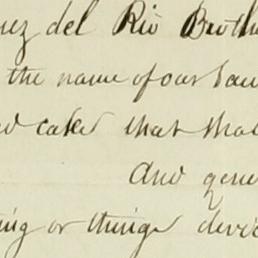 uez del Rio Broth
the name of our Sav
ed cake that shal
And gene
ing or things devi